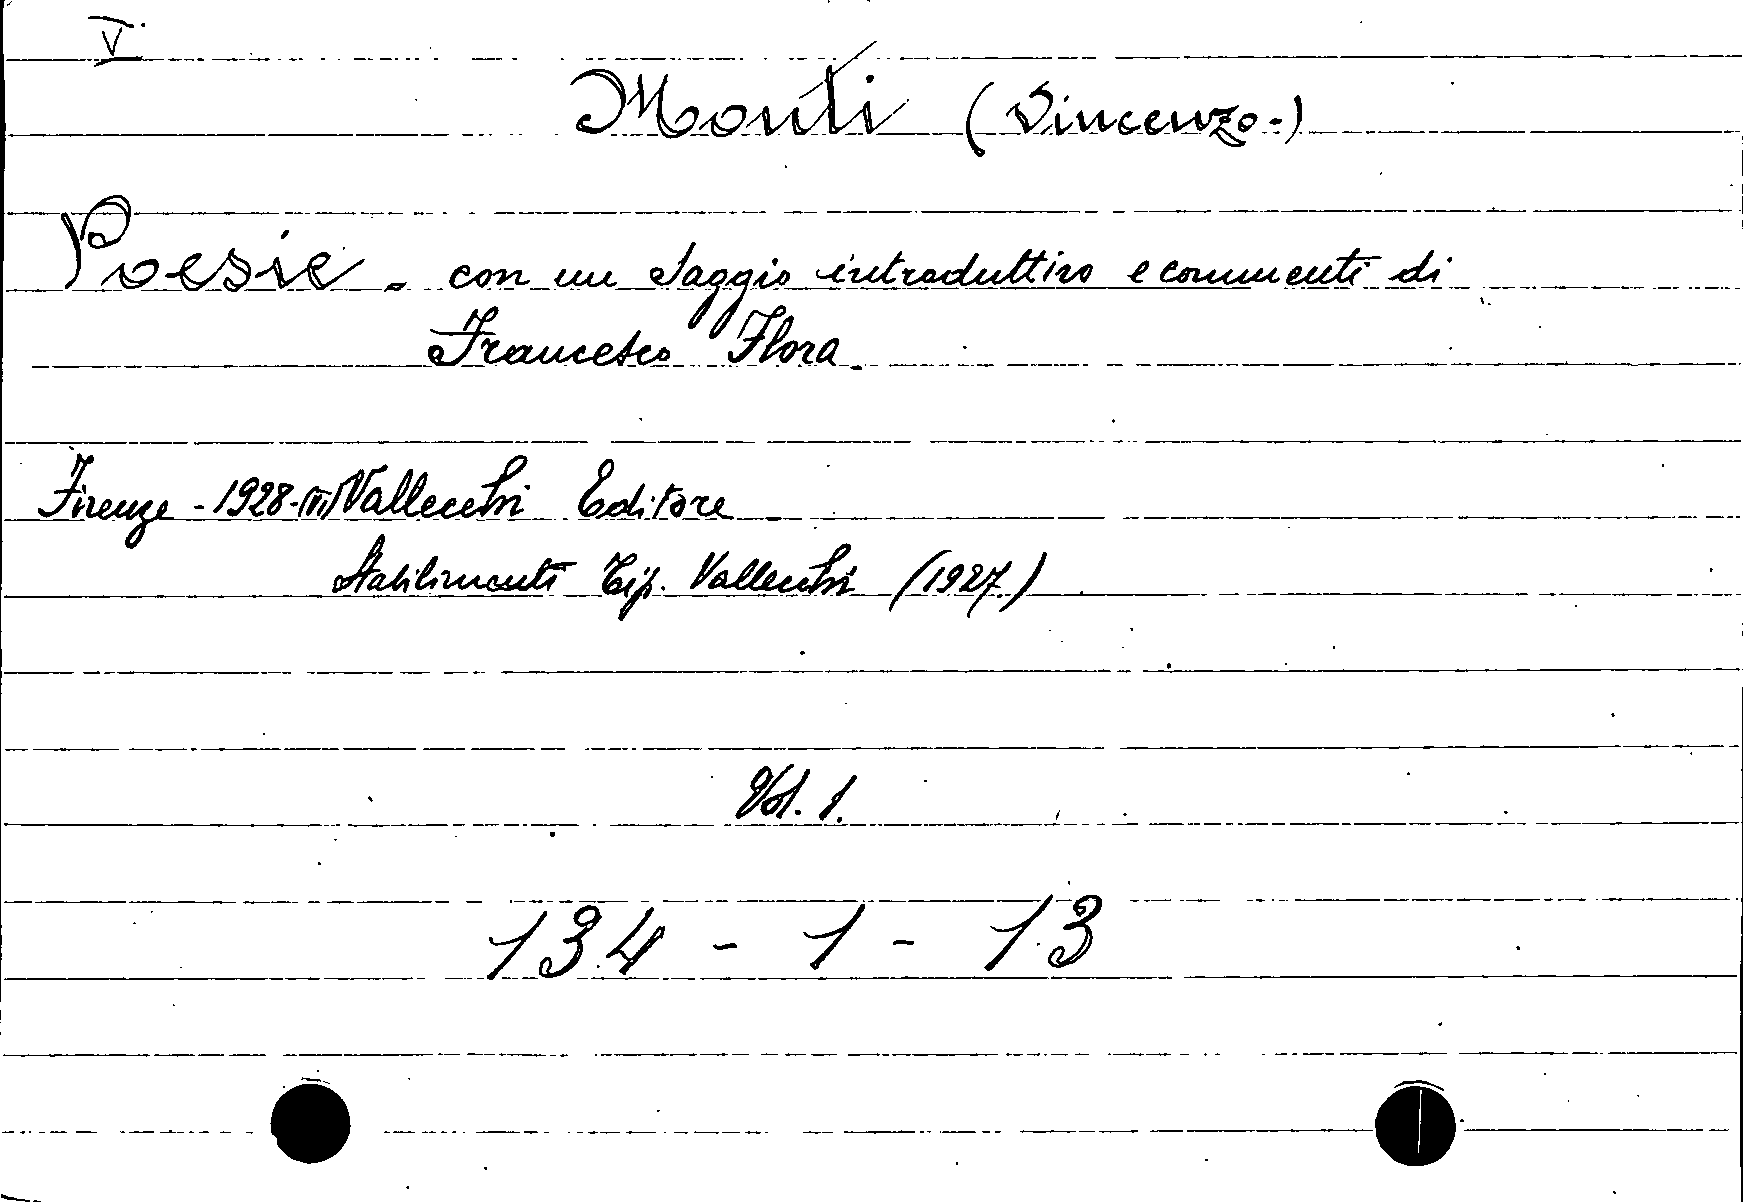 V.
Monti (Vincenzo-)
Poesie - con un Saggio introduttivo e commenti di
Francesco Flora
Firenze - 1928-(VI) Vallecchi Editore
Stabilimenti Tip. Vallecchi (1927)
Vol. 1.
134 - 1 - 13